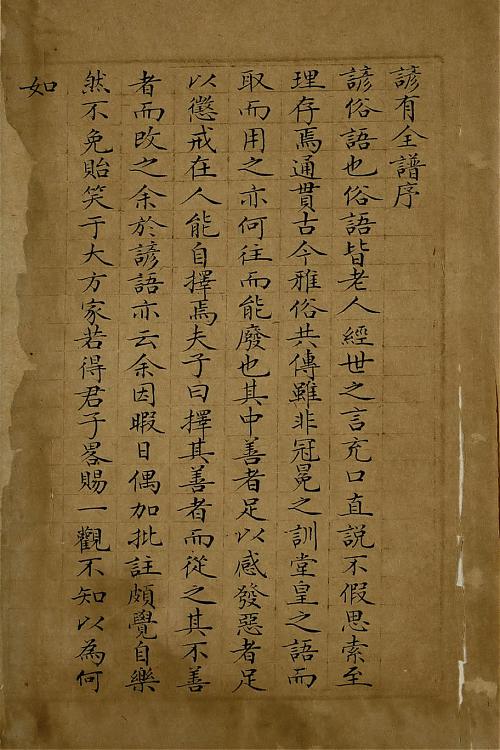 諺有全譜序
諺俗語也俗語皆老人經世之言充口直說不假思索至
理存焉通貫古今雅俗共傳雖非冠冕之訓堂皇之語而
取而用之亦何往而能廢也其中善者足以感發惡者足
以懲戒在人能自擇焉夫子曰擇其善者而從之其不善
者而改之余於諺語亦云余因暇日偶加批註頗覺自樂
然不免貽笑于大方家若得君子畧賜一觀不知以為何
如